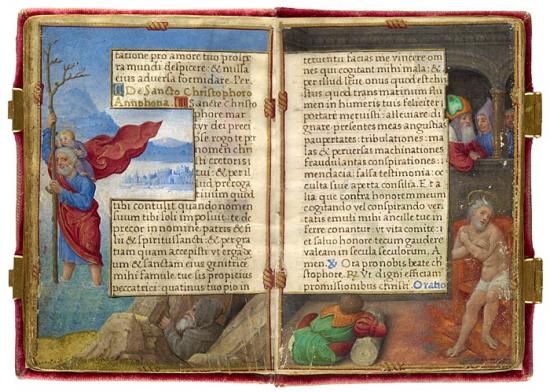 tatione pro amore tuo prospe
ra mundi despicere: & nulla
eius adversa formidare. Per.
De Sancto Christophoro
Antiphona. Sancte Christo
phore mar
tyr dei preci
ose rogo te per
nomen christi
creatoris
illud preroga
tiuum quod
tibi contulit quando nomen
suum tibi soli imposuit: te de
precor in nomine patris & fi
lii & spiritussancti: & per gra
tiam quam accepisti: vt erga de
um & sanctam eius genitricem
mihi famule tue sis propitius
peccatrice: quatinus tuo pio in
teruentu facias me vincere om
nes qui cogitant mihi mala: &
per illud leue onus quod est chri
stus: quod trans marinum flu
men in humeris tuis feliciter
portare meruisti: alleuiare di
gnare presentes meas angustias
paupertates: tribulationes: ma
las & peruersas machinationes
fraudulentas conspirationes:
mendacia: falsa testimonia: oc
culta siue aperta consilia. Et a
lia que contra honorem meum
cogitando vel conspirando ver
tatis emuli mihi ancille tue in
ferre conantur: vt vita comite:
et saluo honore tecum gaudere
valeam in secula seculorum. A
men. Ora pro nobis beate chri
stophore. Vt digni efficiam
promissionibus christi. Oratio